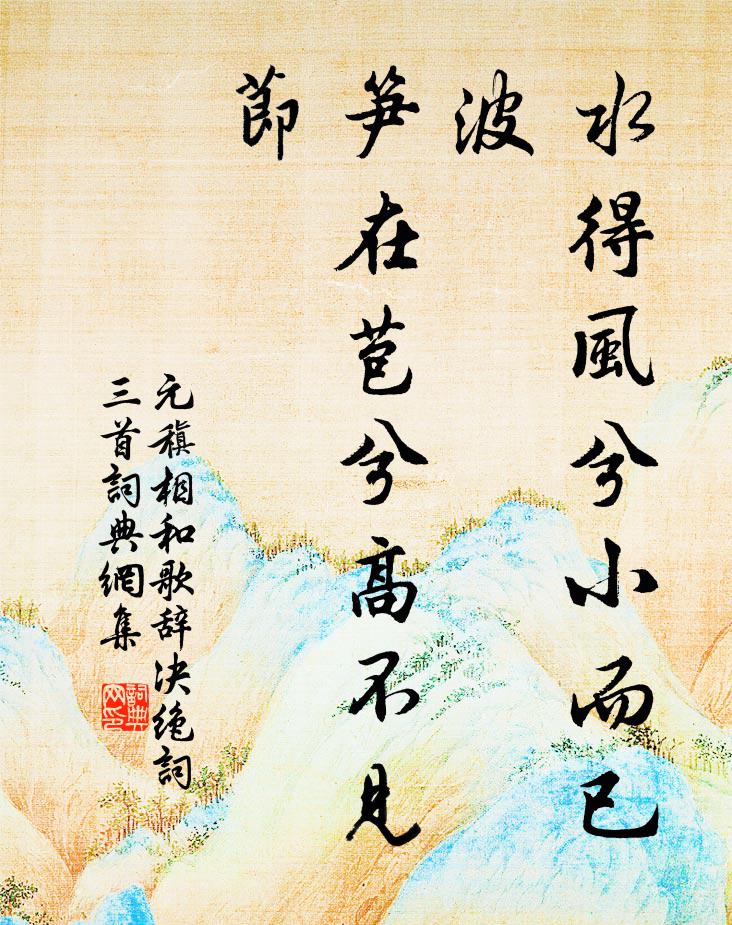 水得風兮小而已
波
笋在苞兮高不見
節
元稹相和歌辞決绝詞
三首詞典網集
詞典
网印